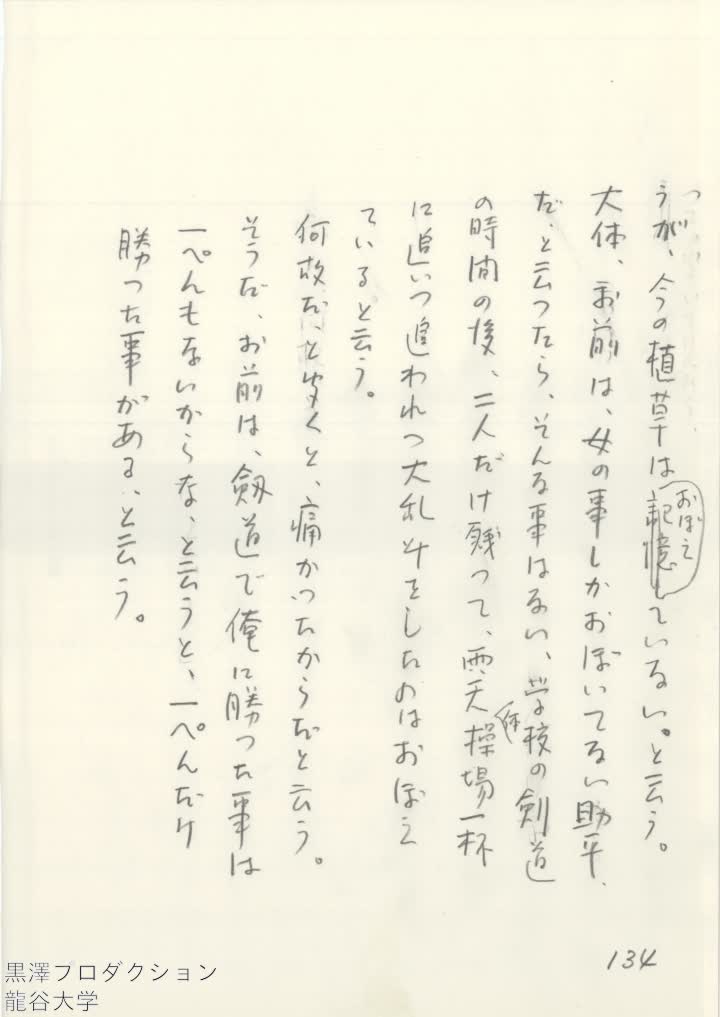 うが、今の植草は記憶していない。と云う。
おぼえ
大体、お前は、女の事しかおぼいてない助平、
だ、と云つたら、そんな事はない、学校の剣道
の時間の後、二人だけ残って、雨天体操場一杯
に追いつ追われつ大乱斗をしたのはおぼえ
ていると云う。
何故だ、と聞くと、痛かつたからだと云う。
そうだ、お前は、剱道で俺に勝つた事は
一ぺんもないからな、と云うと、一ぺんだけ
勝つた事がある、と云う。
134
黒澤プロダクション
龍谷大学